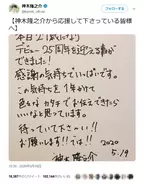 神木隆之介
【神木隆之介から応援して下さっている皆様へ】
本日2(歳)
デビュー25周年を迎える事が
できました!
感謝の気持ちでいっぱいです。
この気持ちを1年かけて
色々なカタチでお伝えできたら
いいなと思っています。
待っていて下さいー!!
お願いします!!では!!
2020
5.19
神木隆之介